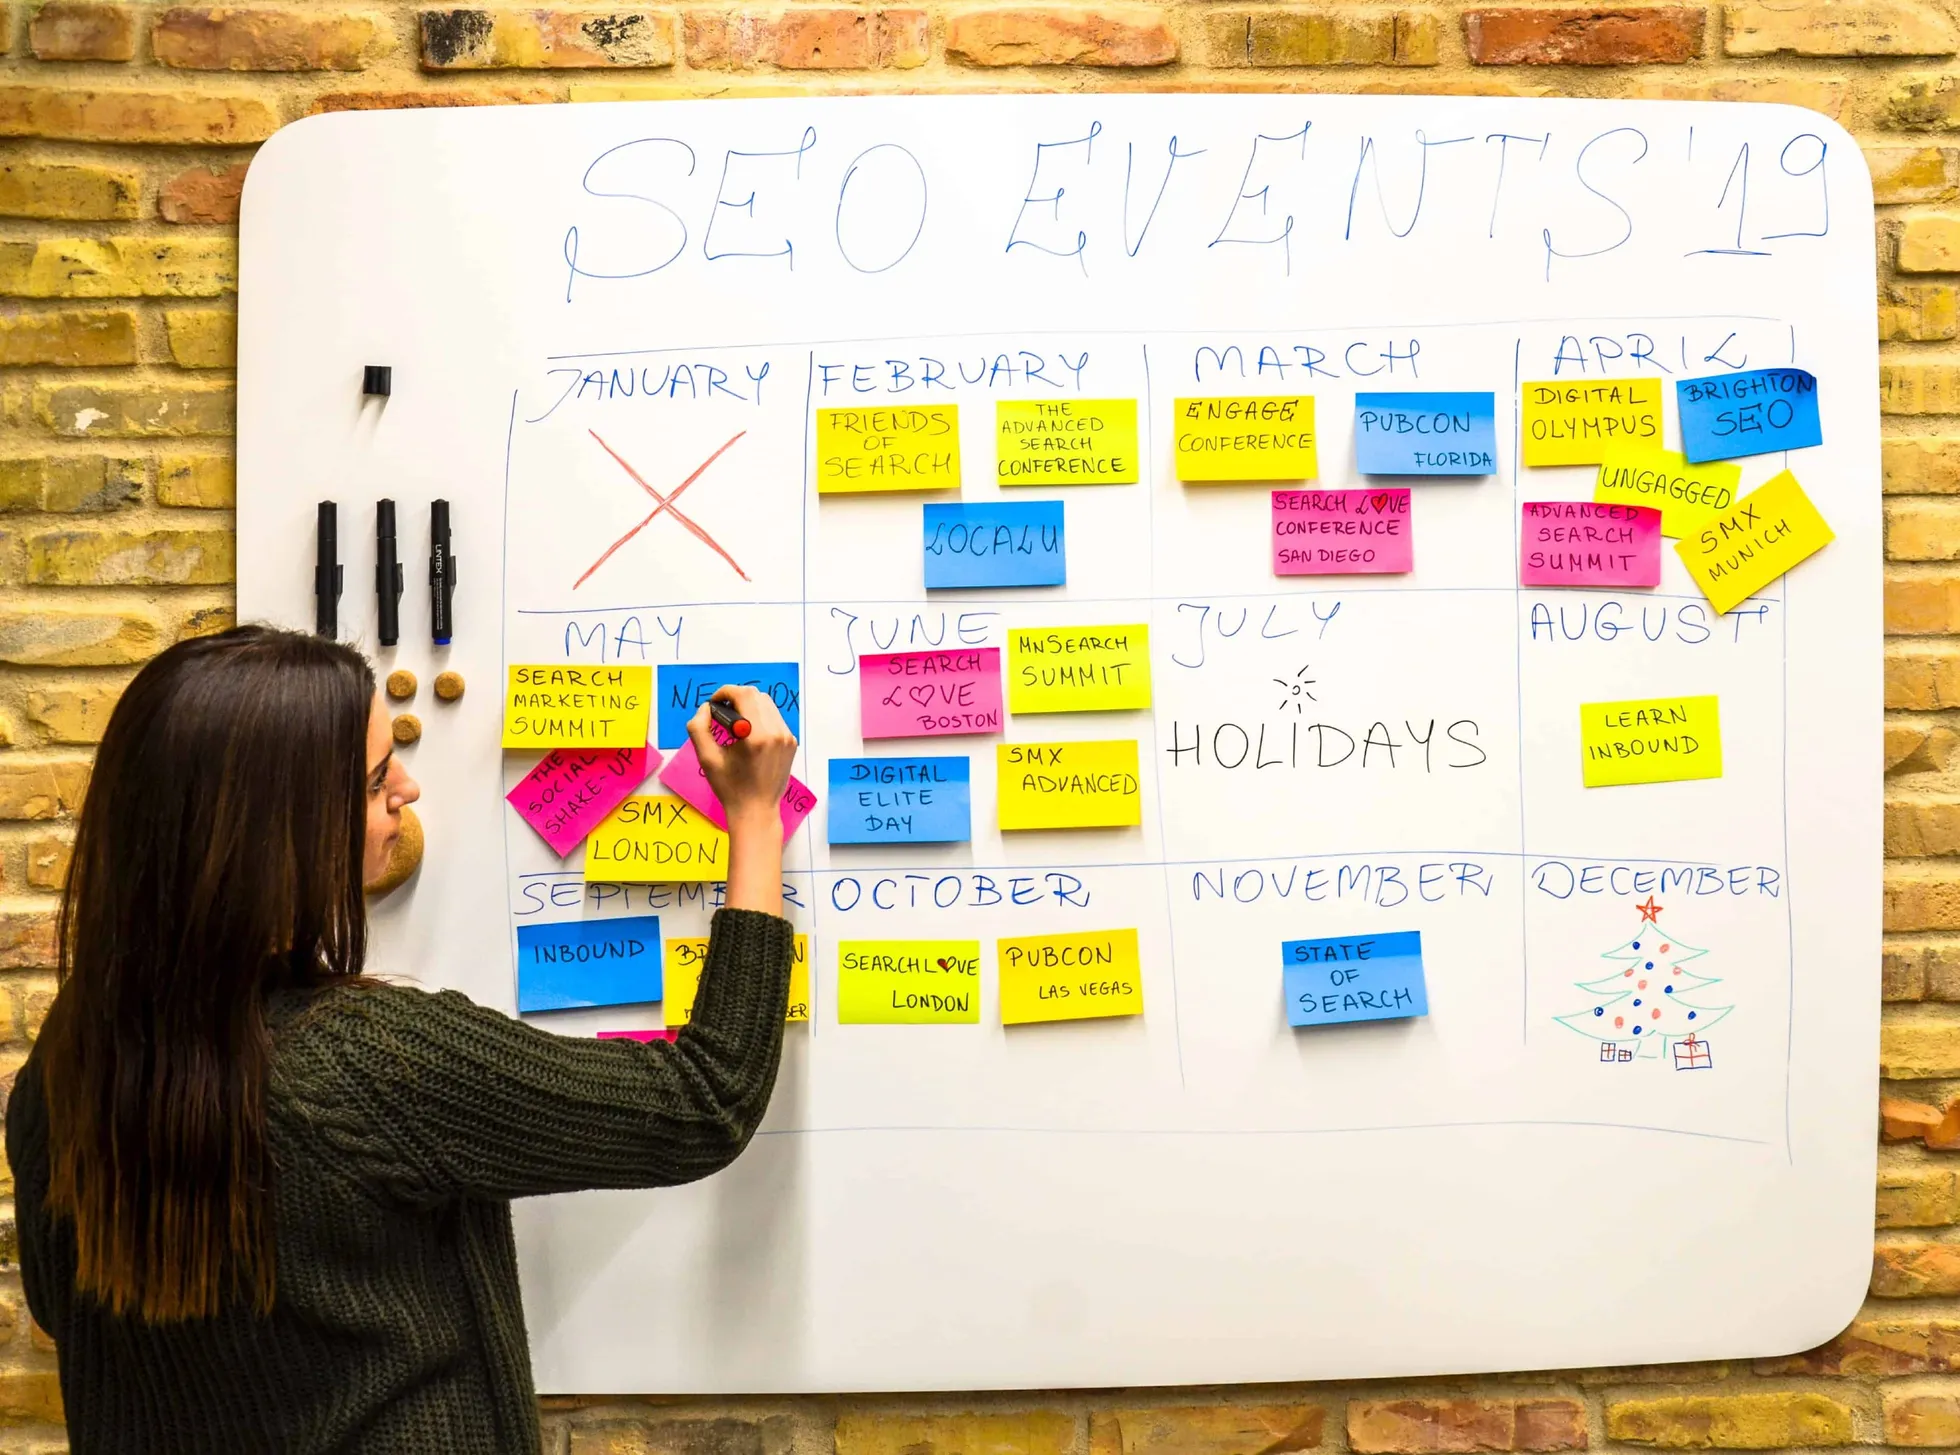 SEO EVENTS'19
JANUARY
FEBRUARY
FRIENDS
OF
SEARCH
THE
ADVANCED
SEARCH
CONFERENCE
LOCALU
MARCH
ENGAGE
CONFERENCE
PUBCON
FLORIDA
SEARCH L♥VE
CONFERENCE
SAN DIEGO
APRIL
DIGITAL
OLYMPUS
BRIGHTON
SEO
UNGAGGED
ADVANCED
SEARCH
SUMMIT
SMX
MUNICH
MAY
SEARCH
MARKETING
SUMMIT
THE
SOCIAL
SHAKE-UP
SMX
LONDON
JUNE
SEARCH
L♡VE
BOSTON
MNSEARCH
SUMMIT
DIGITAL
ELITE
DAY
SMX
ADVANCED
JULY
HOLIDAYS
AUGUST
LEARN
INBOUND
SEPTEMBER
INBOUND
OCTOBER
SEARCHL♥VE
LONDON
PUBCON
LAS VEGAS
NOVEMBER
STATE
OF
SEARCH
DECEMBER
LINTEX